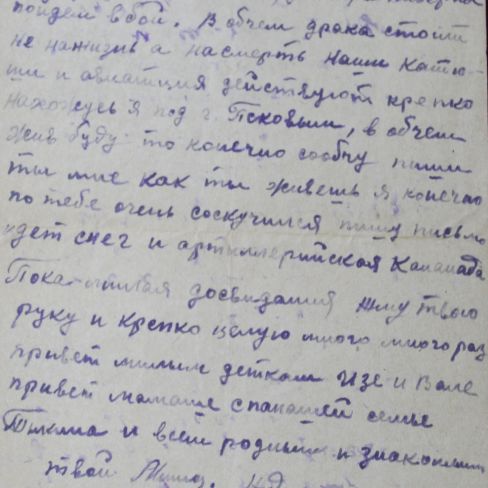 пойдем в бой. В обчем драка стоит
не нажизнь а насмерть наши Катю-
ши и авиатция действуют крепко
нахожусь я под г. Псковым, в обчем
жив буду то конечно сообчу пиши
ты мне как ты живешь я конечно
по тебе очень соскучился пишу письмо
идет снег и артиллерийская Кананада
Пока милая досвидания жму твою
руку и крепко целую много много раз
привет милым деткам Изе и Вале
привет мамаше с папашей семье
и всем родным и знакомым
твой